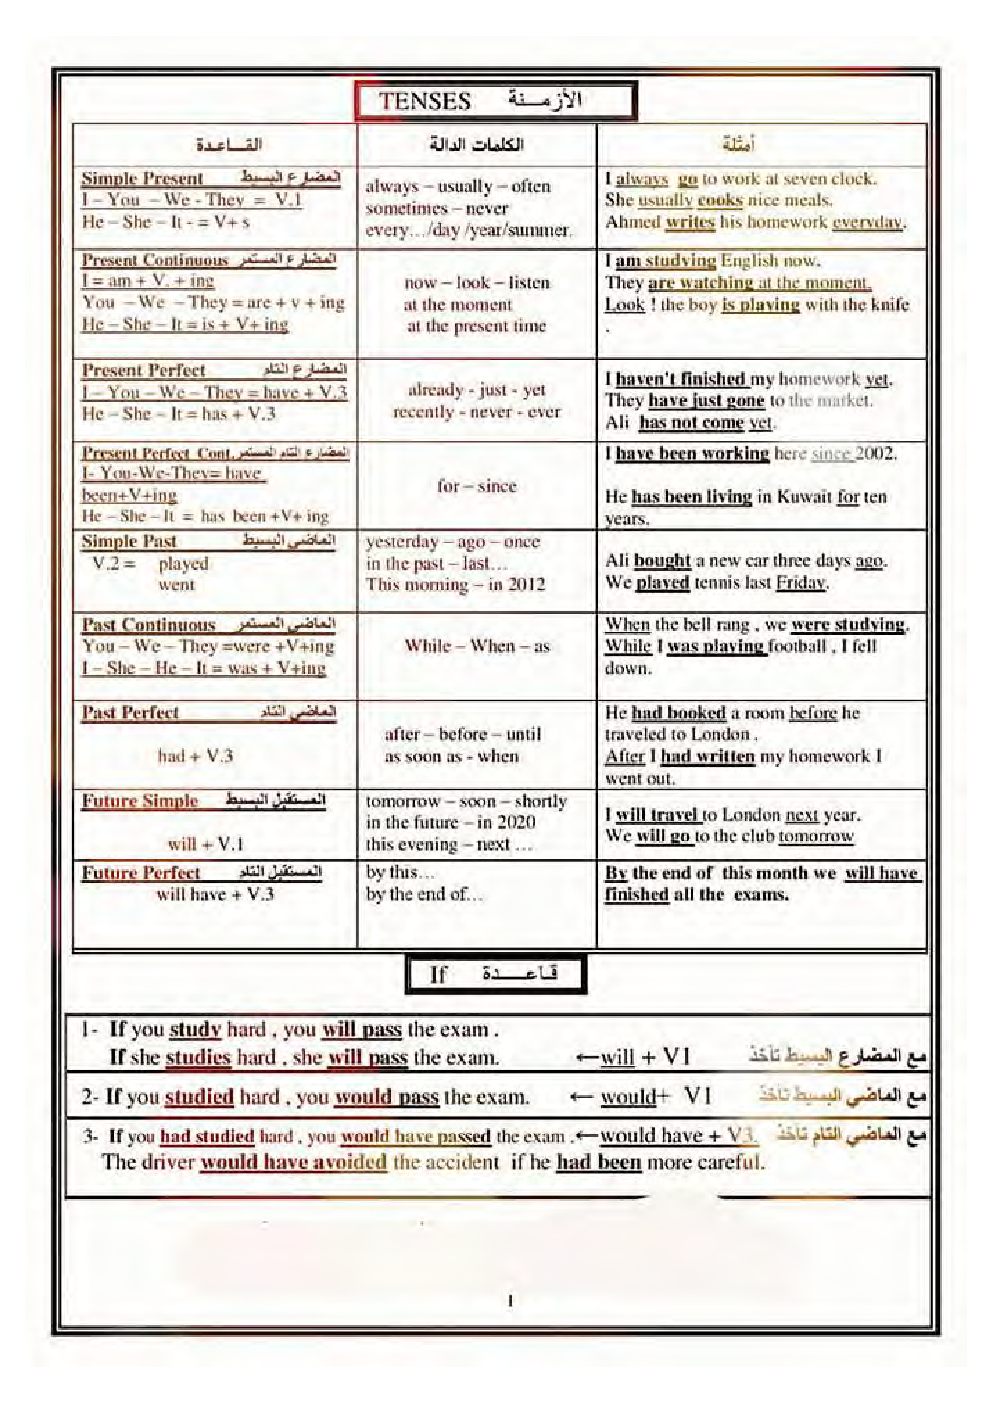 TENSES الأزمـــنة
القـــاعـدة الكلمات الدالة أمثلة
Simple Present المضارع البسيط
I – You – We - They = V.1
He – She – It - = V+ s
always – usually – often
sometimes – never
every…/day /year/summer.
I always go to work at seven clock.
She usually cooks nice meals.
Ahmed writes his homework everyday.
Present Continuous المضارع المستمر
I = am + V. + ing
You – We – They = are + v + ing
He – She – It = is + V+ ing
now – look – listen
at the moment
at the present time
I am studying English now.
They are watching at the moment.
Look ! the boy is playing with the knife
.
Present Perfect المضارع التام
I – You – We – They = have + V.3
He – She – It = has + V.3
already - just - yet
recently - never - ever
I haven't finished my homework yet.
They have just gone to the market.
Ali has not come yet.
Present Perfect Cont. المضارع التام المستمر
I- You-We-They= have
been+V+ing
He – She – It = has been +V+ ing
for – since
I have been working here since 2002.
He has been living in Kuwait for ten
years.
Simple Past الماضي البسيط
V.2 = played
went
yesterday – ago – once
in the past – last…
This morning – in 2012
Ali bought a new car three days ago.
We played tennis last Friday.
Past Continuous الماضي المستمر
You – We – They =were +V+ing
I – She – He – It = was + V+ing
While – When – as
When the bell rang , we were studying.
While I was playing football , I fell
down.
Past Perfect الماضي التام
had + V.3
after – before – until
as soon as - when
He had booked a room before he
traveled to London .
After I had written my homework I
went out.
Future Simple المستقبل البسيط
will + V.1
tomorrow – soon – shortly
in the future – in 2020
this evening – next …
I will travel to London next year.
We will go to the club tomorrow
Future Perfect المستقبل التام
will have + V.3
by this…
by the end of…
By the end of this month we will have
finished all the exams.
If قـاعــــدة
1- If you study hard , you will pass the exam .
If she studies hard , she will pass the exam. ←will + V1 مع المضارع البسيط تأخذ
2- If you studied hard , you would pass the exam. ← would+ V1 مع الماضي البسيط تأخذ
3- If you had studied hard , you would have passed the exam .←would have + V3. مع الماضي التام تأخذ
The driver would have avoided the accident if he had been more careful.
1